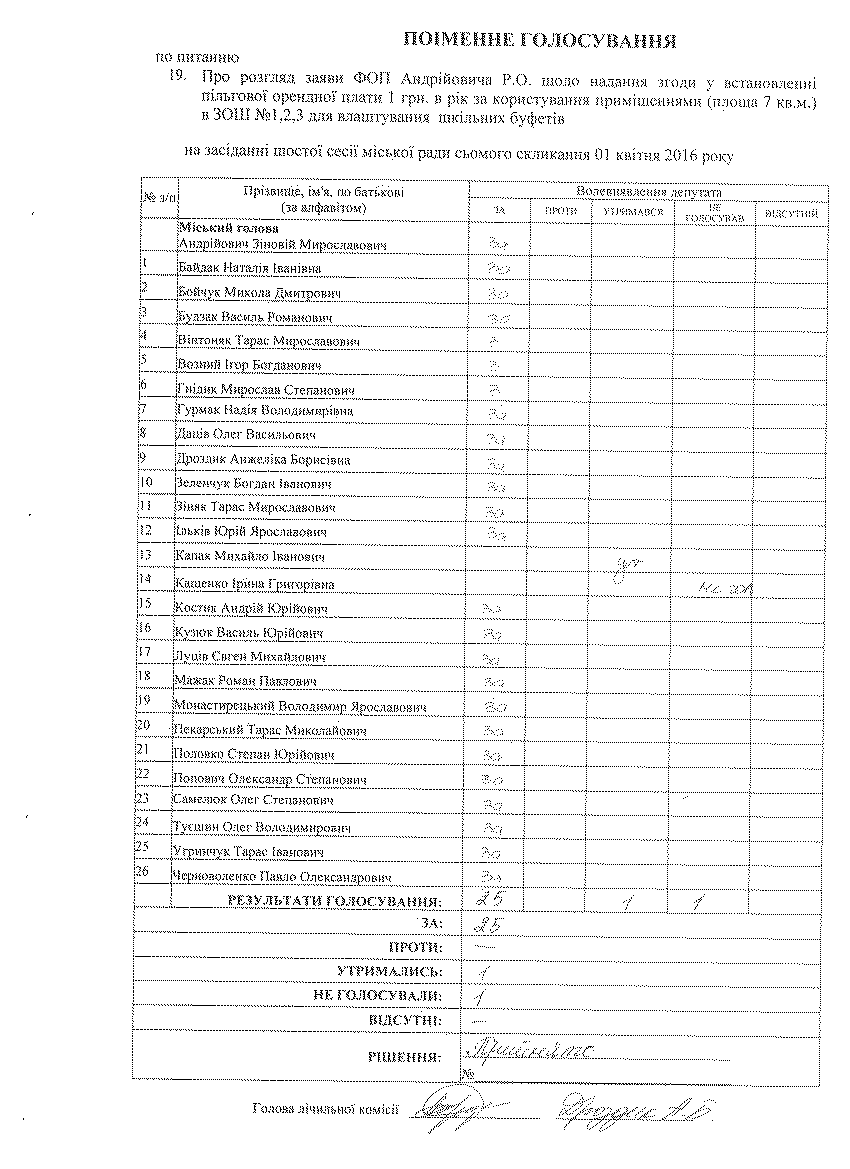 ПОІМЕННЕ ГОЛОСУВАННЯ
по питанню
19. Про розгляд заяви ФОП Андрійовича Р.О. щодо надання згоди у встановленні
пільгової орендної плати 1 грн. в рік за користування приміщеннями (площа 7 кв.м.)
в ЗОШ №1,2,3 для влаштування шкільних буфетів
на засіданні шостої сесії міської ради сьомого скликання 01 квітня 2016 року
№ з/п Прізвище, ім'я, по батькові (за алфавітом) Волевиявлення депутата
ЗА ПРОТИ УТРИМАВСЯ НЕ ГОЛОСУВАВ ВІДСУТНІЙ
Міський голова
Андрійович Зіновій Мирославович За
1 Байдак Наталія Іванівна За
2 Бойчук Микола Дмитрович За
3 Будзак Василь Романович За
4 Вінтоняк Тарас Мирославович
5 Возний Ігор Богданович
6 Гнідик Мирослав Степанович
7 Гурмак Надія Володимирівна За
8 Даців Олег Васильович За
9 Дроздик Анжеліка Борисівна За
10 Зеленчук Богдан Іванович За
11 Зіняк Тарас Мирославович За
12 Ільків Юрій Ярославович За
13 Капак Михайло Іванович ут
14 Кащенко Ірина Григорівна не гол
15 Костик Андрій Юрійович За
16 Кузюк Василь Юрійович За
17 Луців Євген Михайлович За
18 Мажак Роман Павлович За
19 Монастирецький Володимир Ярославович За
20 Пекарський Тарас Миколайович За
21 Половко Степан Юрійович За
22 Попович Олександр Степанович За
23 Самелюк Олег Степанович За
24 Олег Володимирович За
25 Угринчук Тарас Іванович За
26 Черноволенко Павло Олександрович За
РЕЗУЛЬТАТИ ГОЛОСУВАННЯ: 25 1 1
ЗА: 25
ПРОТИ: —
УТРИМАЛИСЬ: 1
НЕ ГОЛОСУВАЛИ: 1
ВІДСУТНІ: —
РІШЕННЯ: Прийнято
№
Голова лічильної комісії Дроздик А.Б.